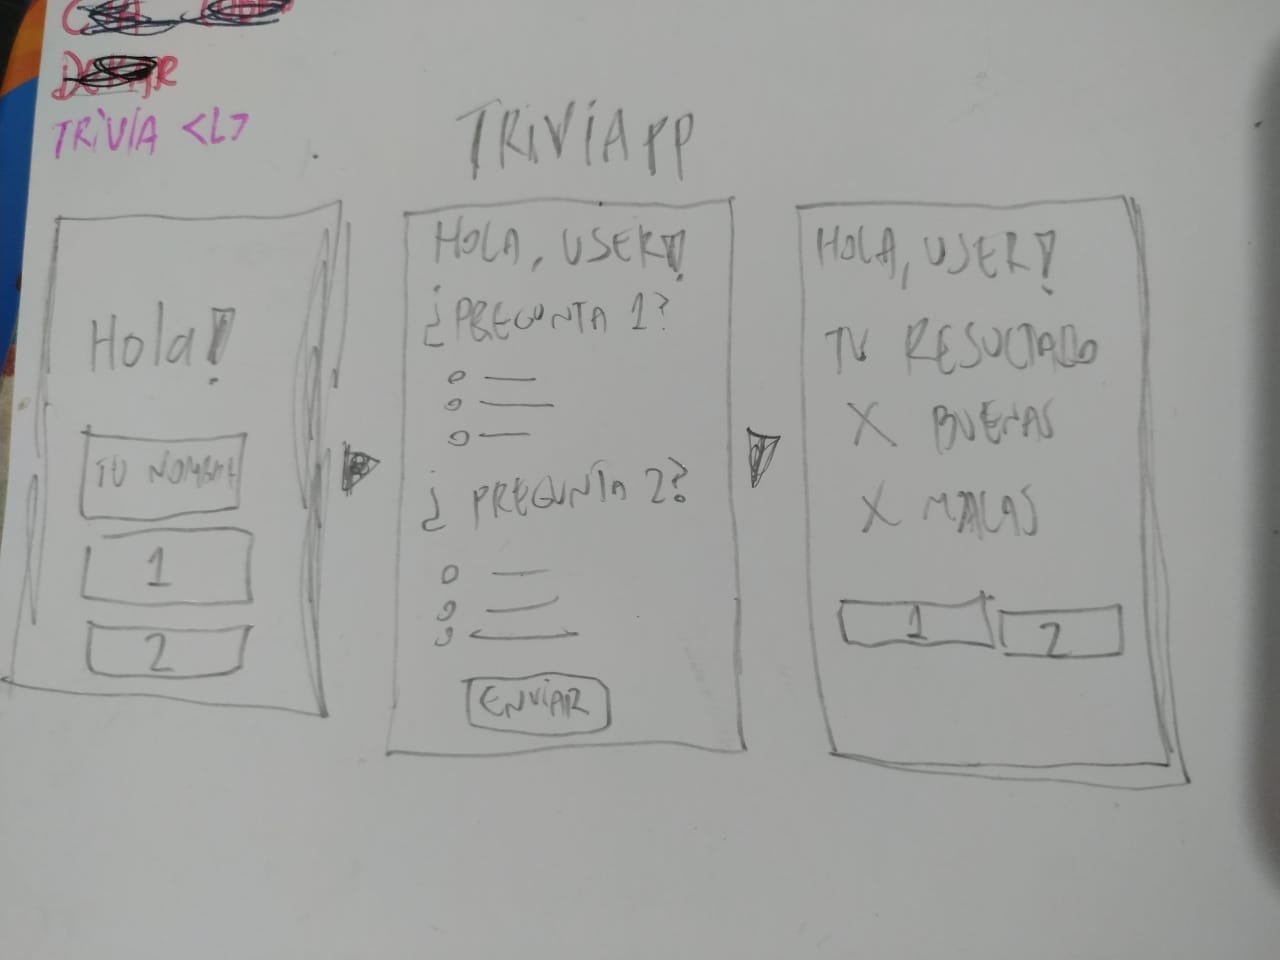 TRIVIA <L>
TRIVIAPP
Hola!
TU NOMBRE
1
2
HOLA, USER!
¿PREGUNTA 1?
¿PREGUNTA 2?
ENVIAR
HOLA, USER!
TU RESULTADO
X BUENAS
X MALAS
1
2